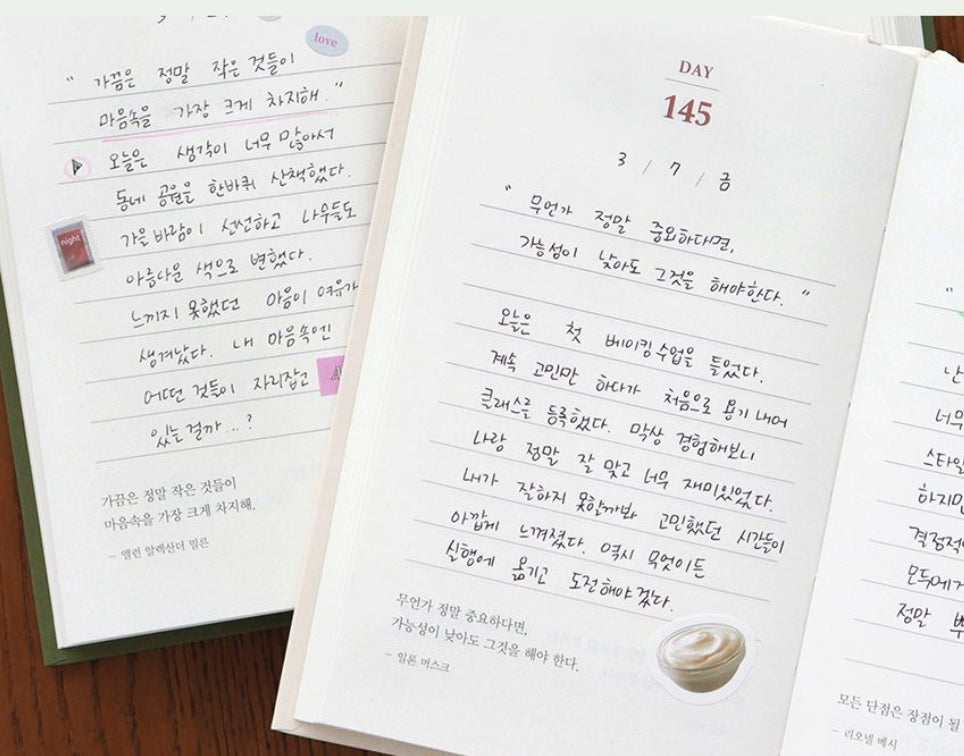 love
" 가끔은 정말 작은 것들이
마음속을 가장 크게 차지해. "
오늘은 생각이 너무 많아서
동네 공원을 한바퀴 산책했다.
가을 바람이 선선하고 나무들도
night
아름다운 색으로 변했다.
느끼지 못했던 마음이 여유가
생겨났다. 내 마음속엔
어떤 것들이 자리잡고
있는 걸까...?
가끔은 정말 작은 것들이
마음속을 가장 크게 차지해.
– 앨런 알렉산더 밀른
DAY
145
3 / 7 / 금
" 무언가 정말 중요하다면,
가능성이 낮아도 그것을 해야한다. "
오늘은 첫 베이킹수업을 들었다.
계속 고민만 하다가 처음으로 용기 내어
클래스를 등록했다. 막상 경험해보니
나랑 정말 잘 맞고 너무 재미있었다.
내가 잘하지 못할까봐 고민했던 시간들이
아깝게 느껴졌다. 역시 무엇이든
실행에 옮기고 도전해야겠다.
무언가 정말 중요하다면,
가능성이 낮아도 그것을 해야 한다.
– 일론 머스크
"
난
너무
스타일
하지만
결정적
모두에게
정말
모든 단점은 장점이 될
– 리오넬 메시